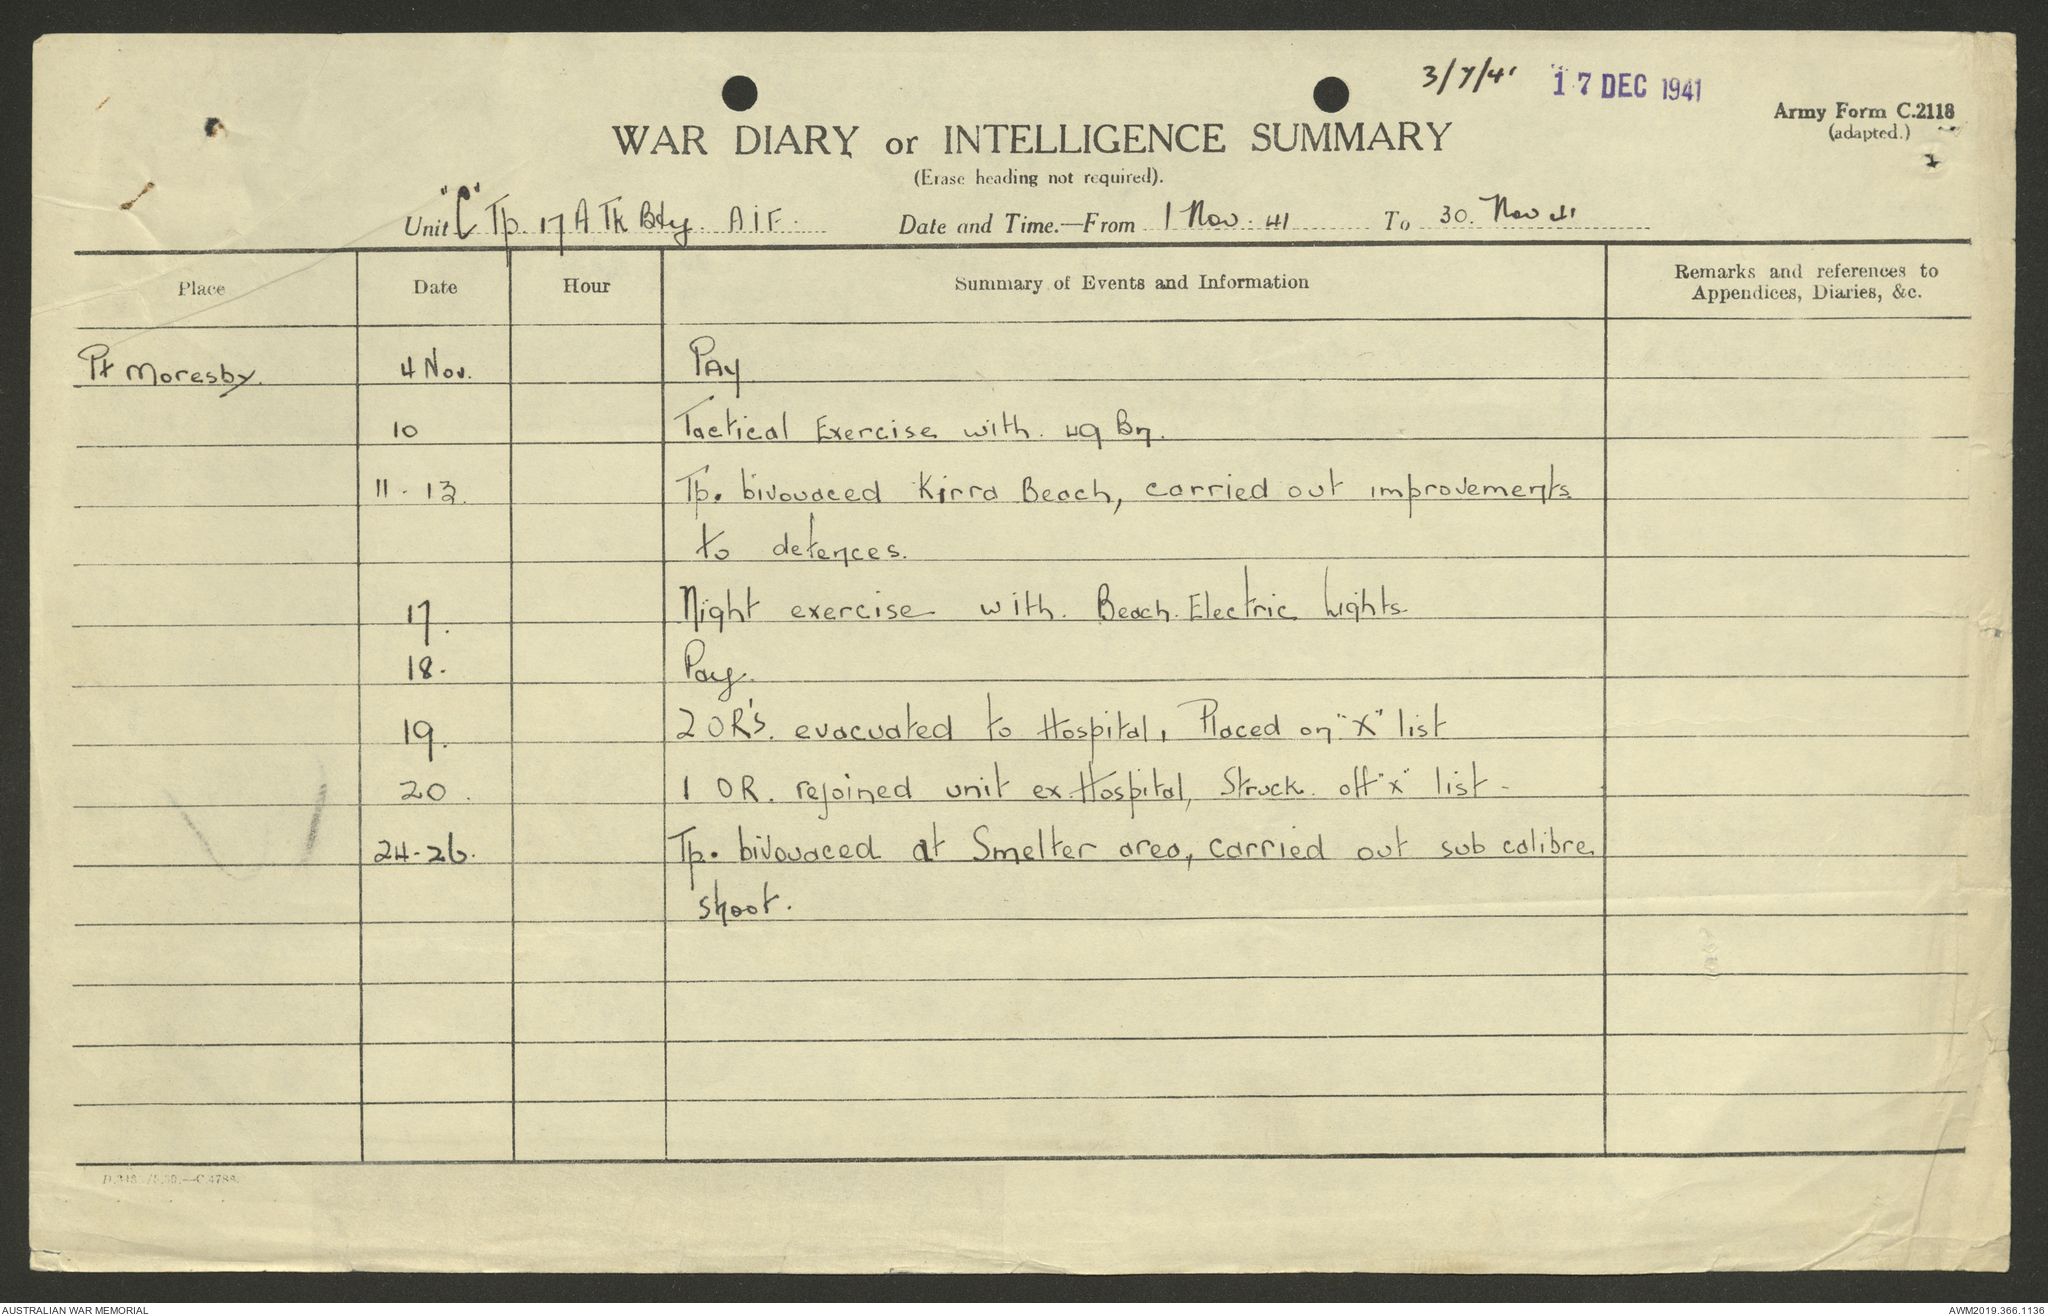 3/7/41 17 DEC 1941
Army Form C.2118
(adapted.)
WAR DIARY or INTELLIGENCE SUMMARY
(Erase heading not required).
Unit "C" Tp. 17 A Tk Bty. AIF. Date and Time.—From 1 Nov. 41 To 30. Nov 41
Place Date Hour Summary of Events and Information Remarks and references to
Appendices, Diaries, &c.
Pt Moresby. 4 Nov. Pay
10 Tactical Exercise with 49 Bn.
11-13. Tp. bivouaced Kirra Beach, carried out improvements
to defences.
17. Night exercise with Beach Electric Lights.
18. Pay.
19. 2 OR's. evacuated to Hospital, Placed on "X" list
20. 1 OR. rejoined unit ex Hospital, Struck off "x" list -
24-26. Tp. bivouaced at Smelter area, carried out sub calibre
shoot.
AUSTRALIAN WAR MEMORIAL
AWM2019.366.1136